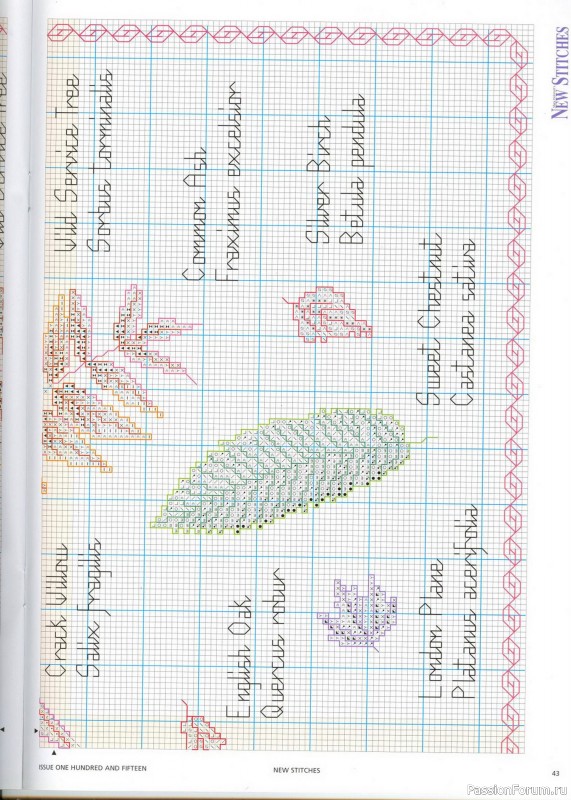 NEW STITCHES
Crack Willow
Salix fragilis
Wild Service Tree
Sorbus torminalis
Common Ash
Fraxinus excelsior
English Oak
Quercus robur
Silver Birch
Betula pendula
London Plane
Platanus acerifolia
Sweet Chestnut
Castanea sativa
ISSUE ONE HUNDRED AND FIFTEEN
NEW STITCHES
43
PassionForum.ru